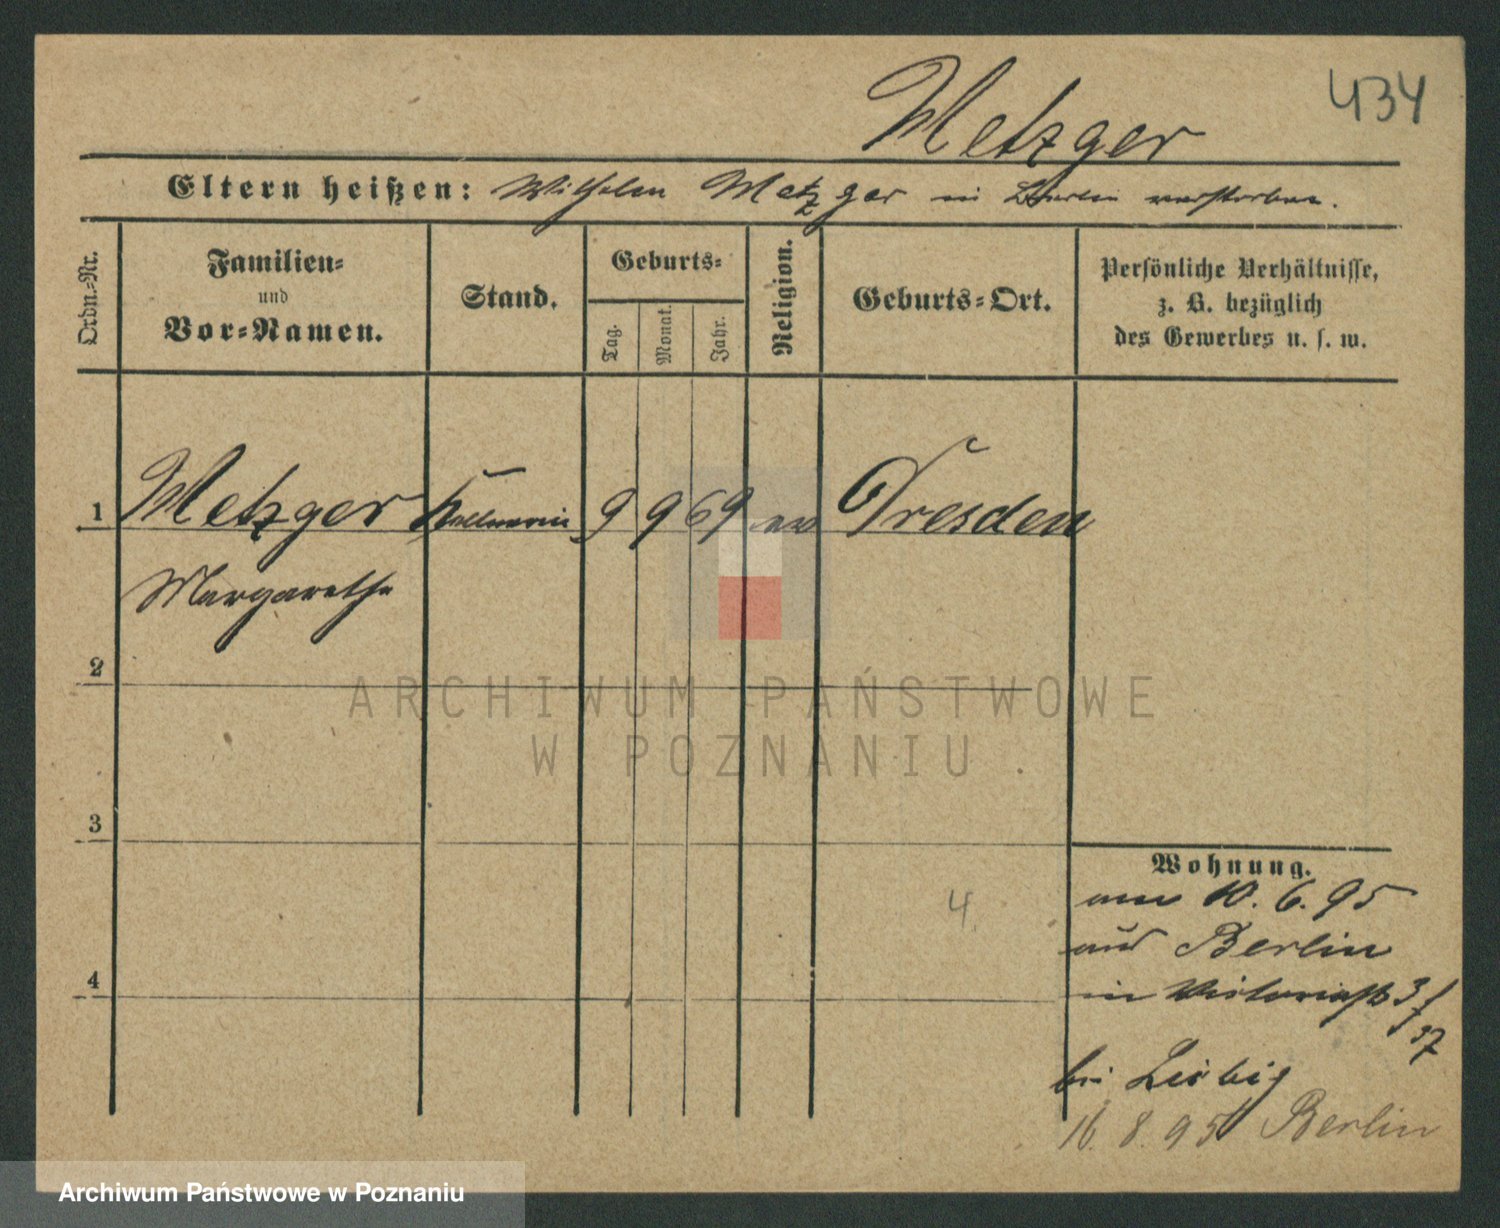 434
Metzger
Eltern heißen: Wilhelm Metzger in Berlin verstorben.
Ordn.-Nr.
Familien-
und
Vor-Namen.
Stand.
Geburts-
Tag.
Monat.
Jahr.
Religion.
Geburts-Ort.
Persönliche Verhältnisse,
z. B. bezüglich
des Gewerbes u. s. w.
1 Metzger Kellnerin 9 9 69 ev Dresden
Margarethe
2
ARCHIWUM PAŃSTWOWE
W POZNANIU
3
4
Wohnung.
am 10. 6. 95
aus Berlin
in Victoriastr
bei Leibig
16. 8. 95 Berlin
4.
Archiwum Państwowe w Poznaniu